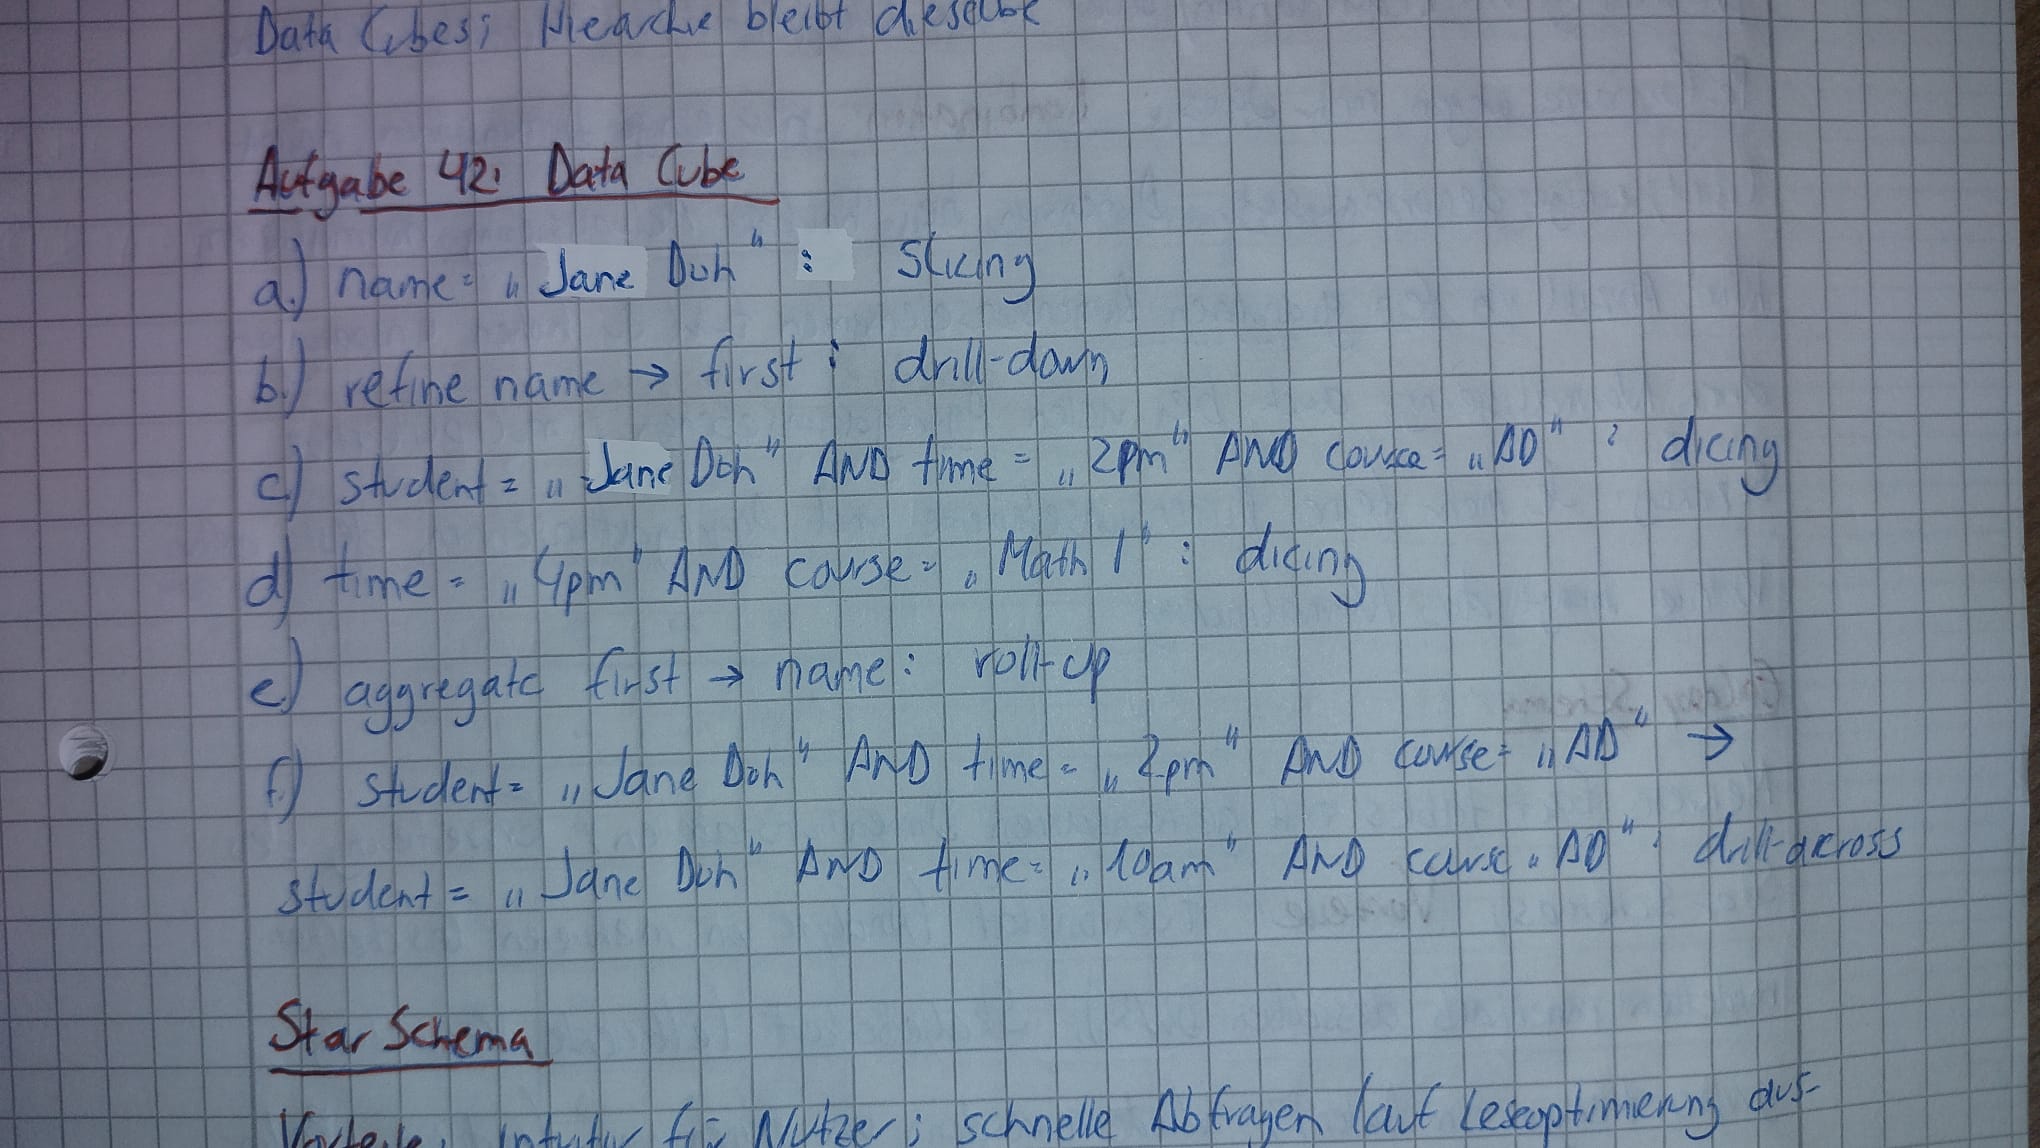 Data Cubes; Hierarchie bleibt dieselbe
Aufgabe 42: Data Cube
a.) name = „Jane Doh“ : Slicing
b.) refine name → first : drill-down
c.) student = „Jane Doh“ AND time = „2pm“ AND course = „AD“ : dicing
d) time = „4pm“ AND course = „Math 1“ : dicing
e.) aggregate first → name : roll-up
f.) student = „Jane Doh“ AND time = „2pm“ AND course = „AD“ →
student = „Jane Doh“ AND time = „10am“ AND course „AD“ : drill-across
Star Schema
Vorteile: intuitiv für Nutzer; schnelle Abfragen laut Leseoptimierung aus-